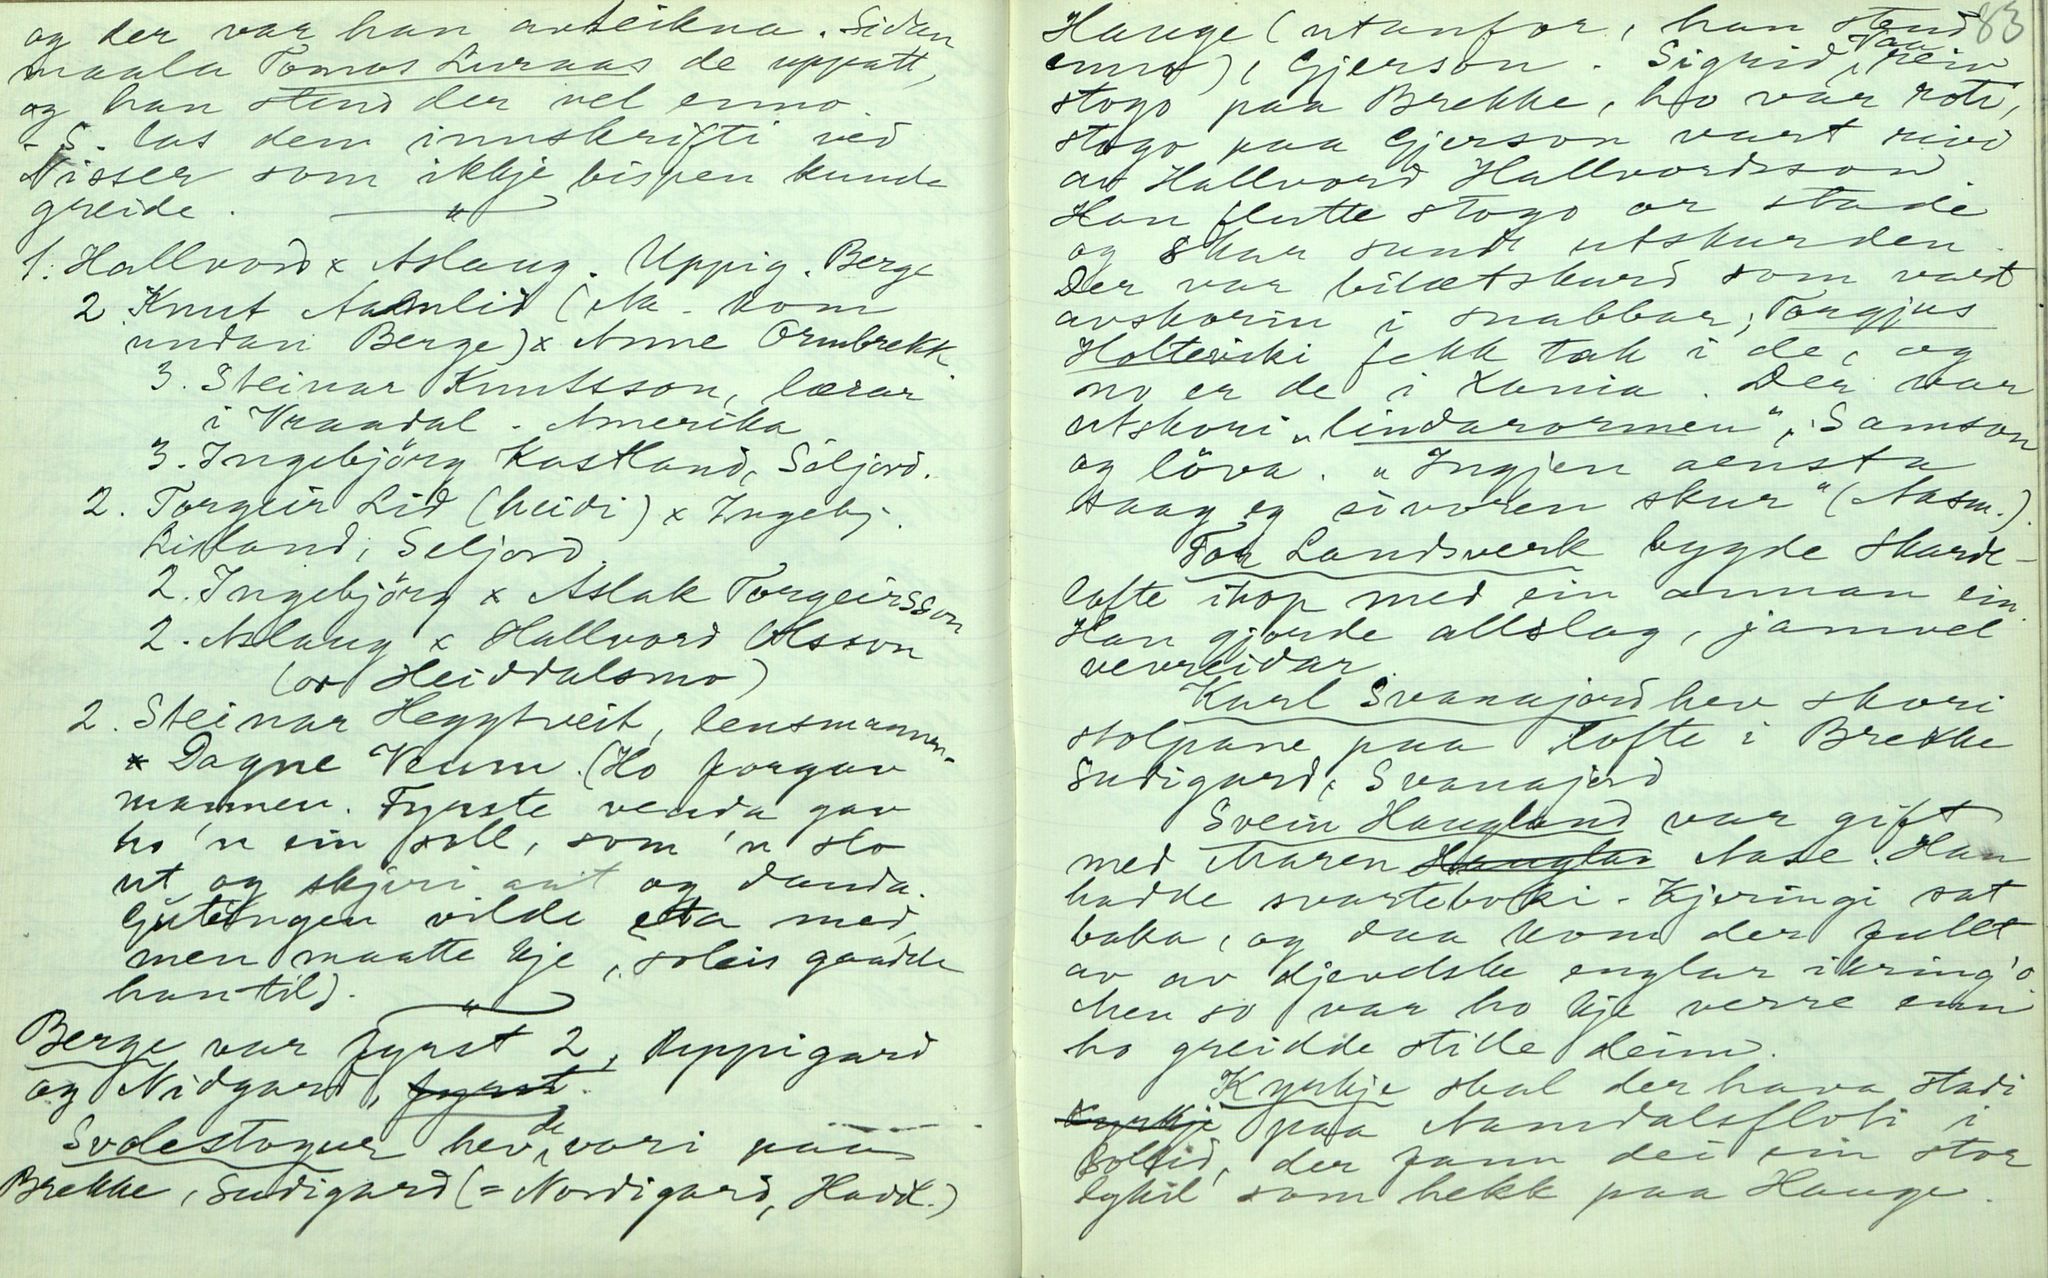 og der var han avteikna. Sidan
maala Tomos Luraas de uppatt,
og han stend der vel enno
- S. las dem innskrifti ved
Nisser som ikkje bispen kunde
greide. "
1. Hallvord x Aslaug. Uppig. Berge
2 Knut Aamlid (Aa - kom
undan Berge) x Anne Ormbrekk
3. Steinar Knutsson, lærar
i Vraadal - Amerika
3. Ingebjörg Kastland, Seljord.
2. Torgeir Lid (heidi) x Ingebj.
Lisland, Seljord.
2. Ingebjörg x Aslak Torgeirsson
2. Aslaug x Hallvord Olsson
(or Heiddalsmo)
2. Steinar Heggtveit, lensmannen.
x Dagne Veum. (Ho forgav
mannen. Fyrste venda gav
ho 'n ein soll, som 'n slo
ut og skjori aat og danda.
Gutungen vilde eta med,
men maatte kje, soleis gaadde
han til).
"
Berge var fyrst 2, Uppigard
og Nidgard, fyrst.
Svolestogur hev de vori paa
Brekke, Sudigard (= Nordigard, Havd.)
83
Hauge (utanfor, han stend
enno), Gjerson. Sigrid Vaa reiv
stogo paa Brekke, ho var roti,
stogo paa Gjerson vart rivi
av Hallvord Hallvordsson
Han flutte stogo or stade
og skar sunde utskurden.
Der var bilætskurd som vart
avskorin i snabbar, Torgjus
Holteviki fekk tak i de, og
no er de i Xania. Der var
utskori "lindarormen", Samson
og löva. "Ingjen aensta
saag eg sivoren skur" (Aasm.).
Tor Landsverk bygde Skarde-
lofte ihop med ein annan ein.
Han gjorde allslag, jamvel
vevreidar.
Karl Svanajord hev skori
stolpane paa lofte i Brekke
Sudigard, Svanajord
Svein Haugland var gift
med Maren Haugla Aase. Han
hadde svarteboki. Kjeringi sat
baka, og daa kom der fullt
av av djevdske englar ikring 'o.
Men so var ho kje verre enn
ho greidde stille deim.
Kyrkje skal der hava stadi
Kyrkje paa Aamdalsfloti i
Bolid, der fann dei ein stor
lykil som hekk paa Hauge.